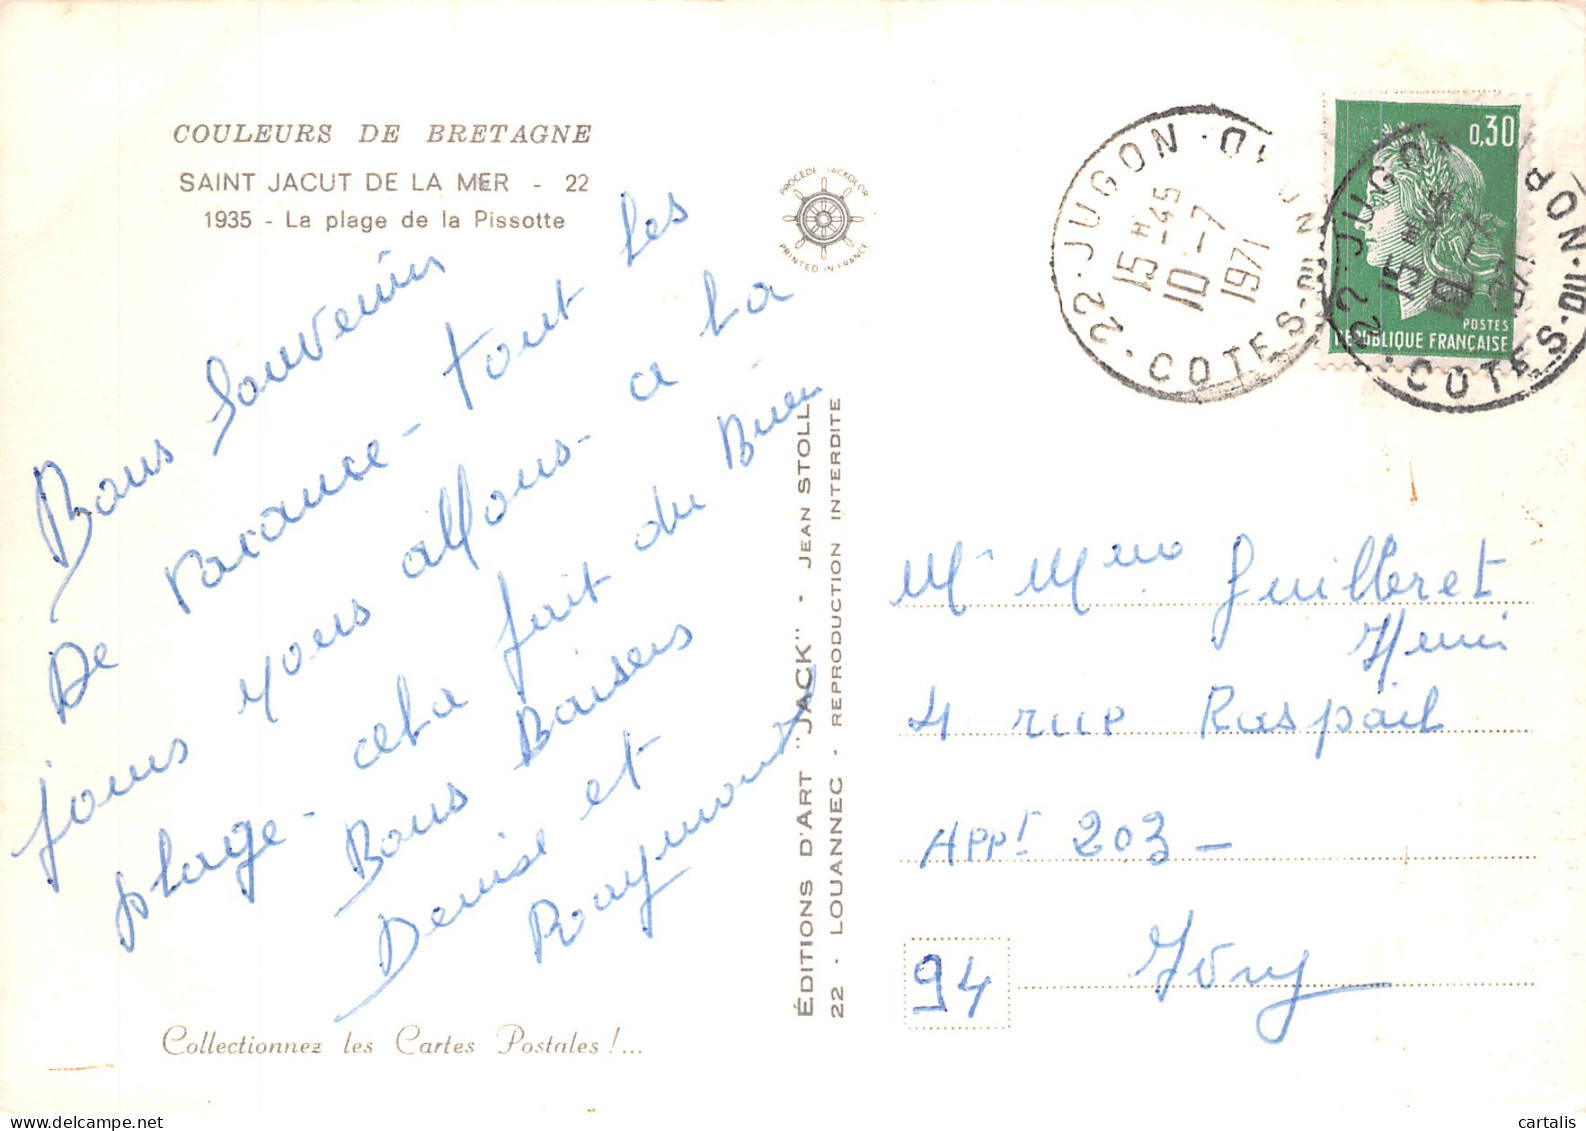 COULEURS DE BRETAGNE
SAINT JACUT DE LA MER - 22
1935 - La plage de la Pissotte
Bons Souvenirs
De vacance - tout les
jours nous allons - a la
plage - cela fait du Bien
Bons Baisers
Denise et
Raymond
Collectionnez les Cartes Postales !...
PROCÉDÉ JACKOLOR
PRINTED IN FRANCE
ÉDITIONS D'ART "JACK" - JEAN STOLL
22 - LOUANNEC - REPRODUCTION INTERDITE
22 - JUGON
15 H -45
10 -7
1971
COTES-DU-NORD
0,30
POSTES
RÉPUBLIQUE FRANÇAISE
22 - JUGON
15 H -45
10 -7
1971
COTES-DU-NORD
Mr Mme Guilleret
Henri
4 rue Raspail
APPt 203 -
94 Ivry
cartalis